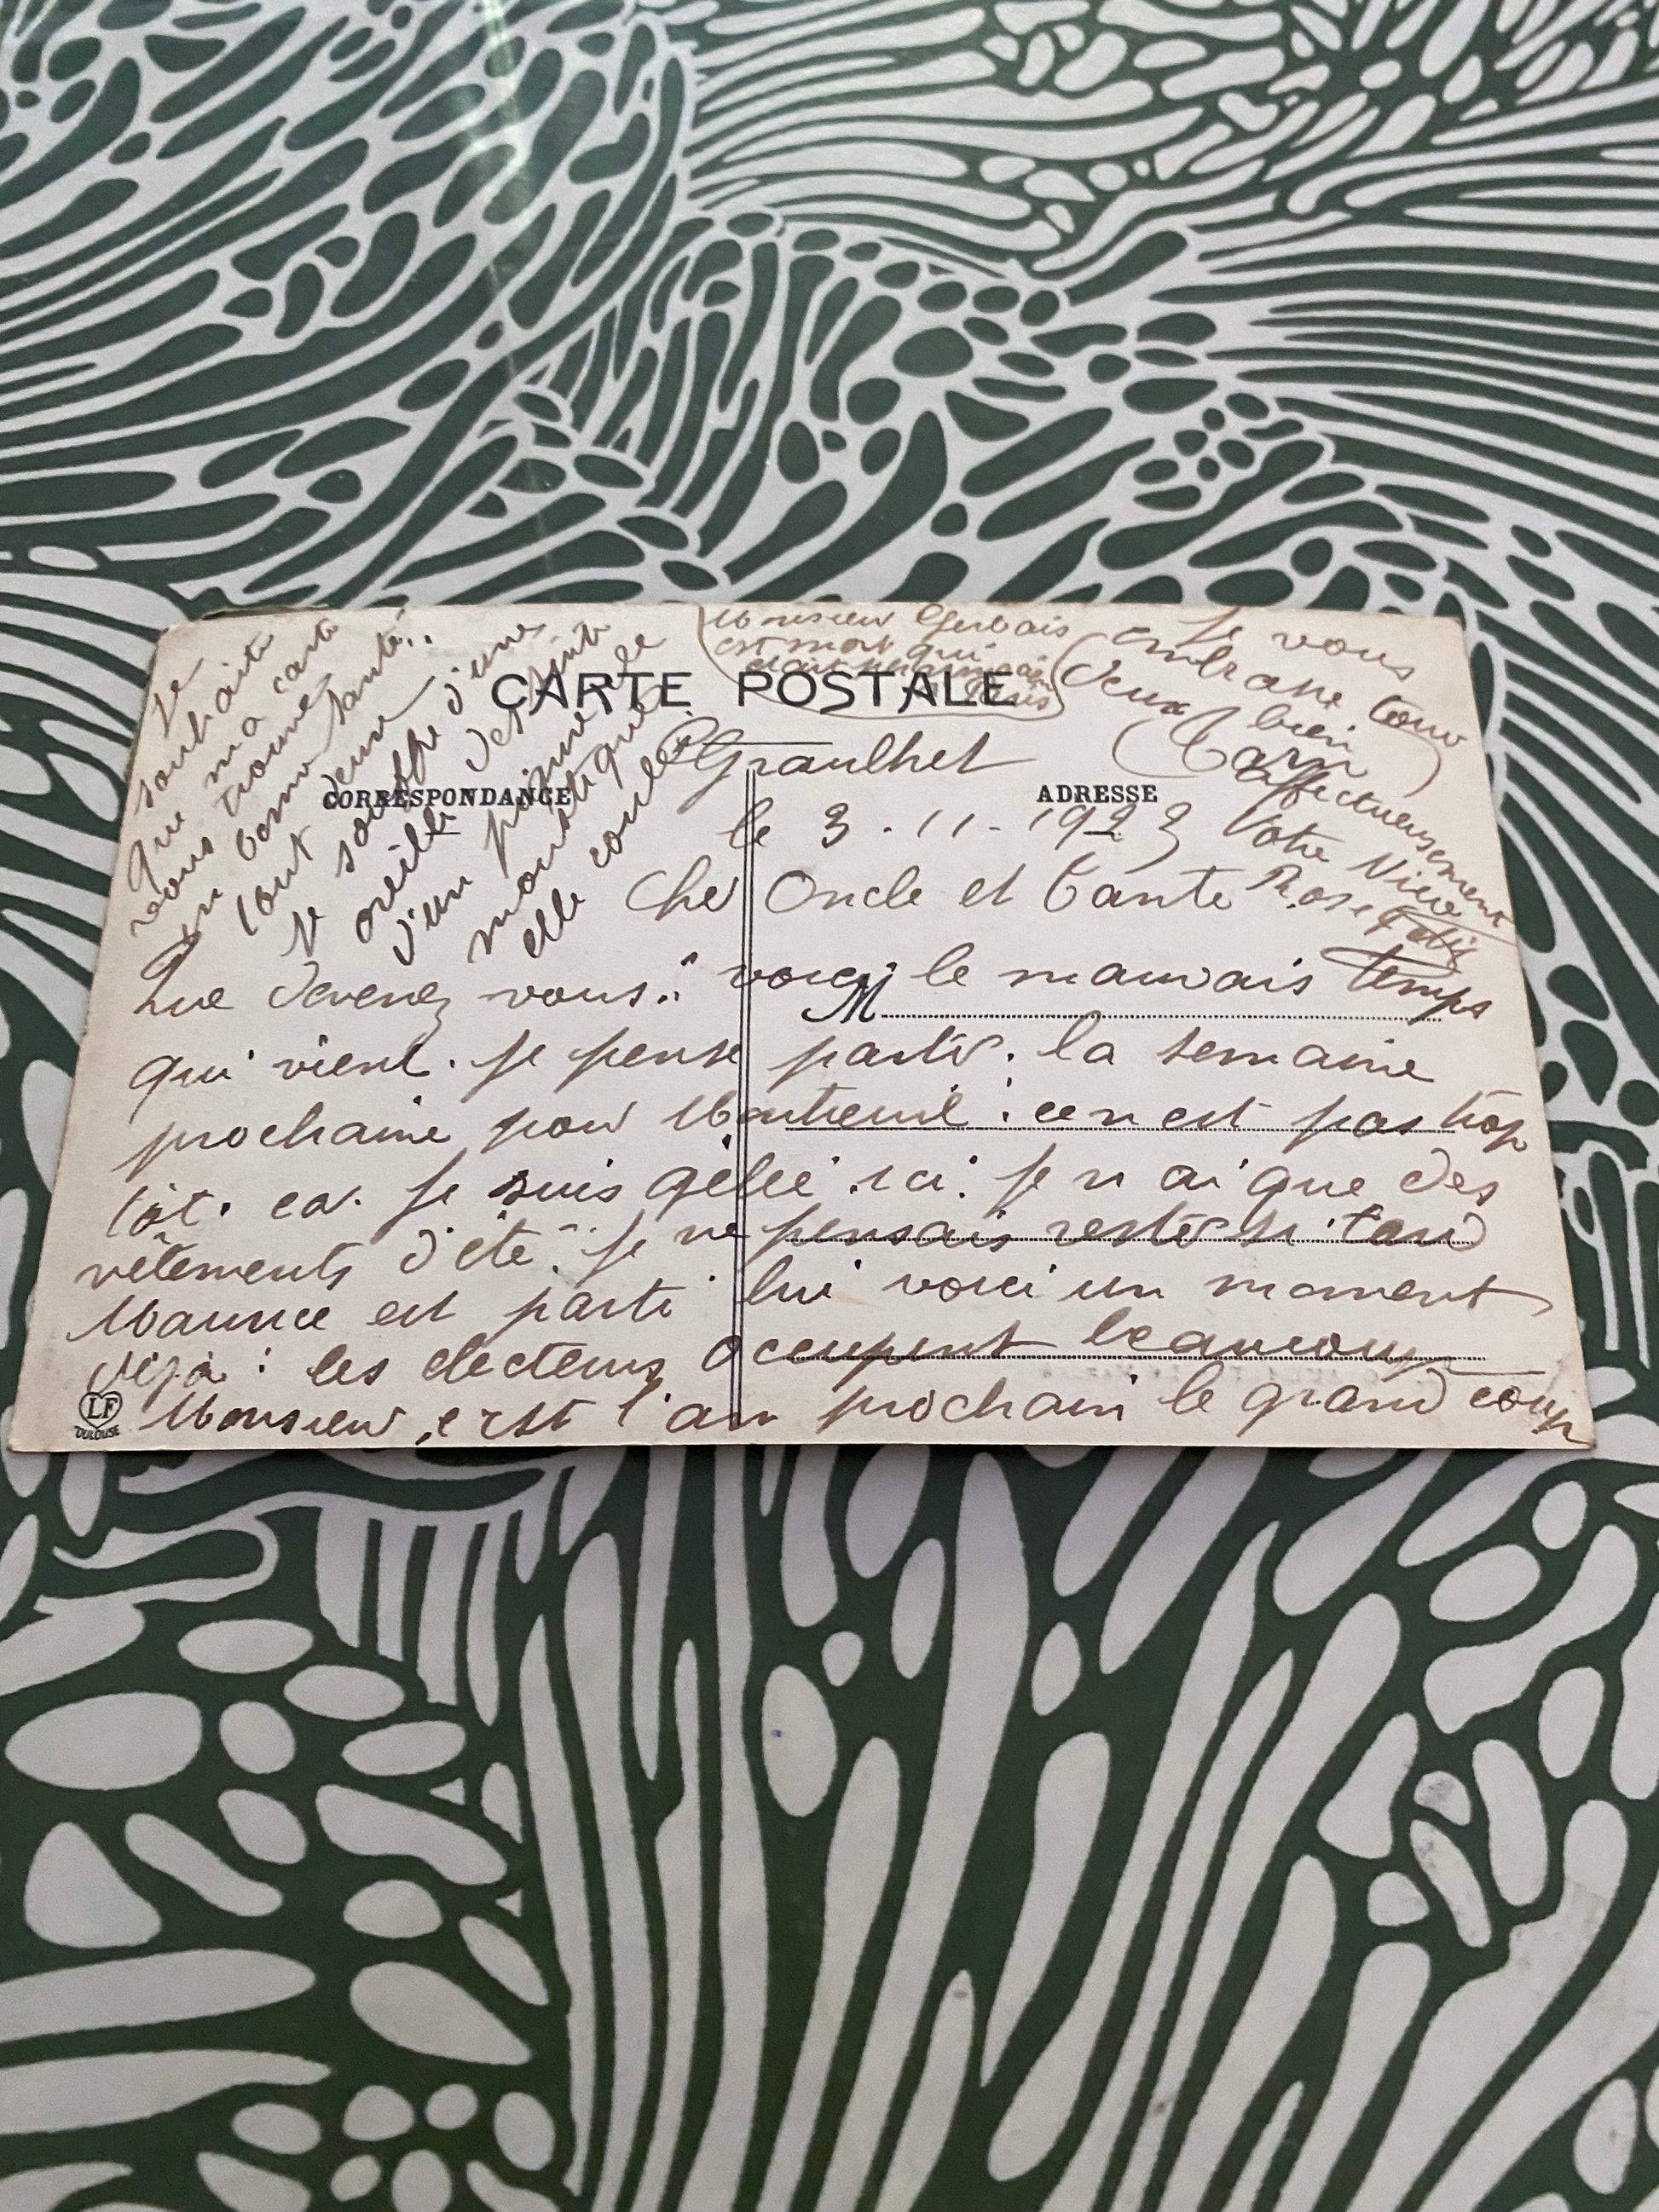 CARTE POSTALE
CORRESPONDANCE
ADRESSE
Graulhet
(Tarn)
le 3.11.1923
Cher Oncle et Tante
Que devenez vous.. voici le mauvais temps
M
qui vient. je pense partir. la semaine
prochaine pour Montreuil : ce n est pas trop
tôt. car je suis gélée ici. je n ai que des
vêtements d'été. je ne pensais rester si tard
Maurice est parti lui voici un moment
déjà : les electeurs occupent beaucoup
Monsieur, c est l'an prochain le grand coup
LF
TOULOUSE
Je
souhaite
que ma carte
vous trouve
en bonne santé..
tout deux
je souffre d'une
oreille des suite
d'un piqure de
moustique
elle coule
Monsieur Gerbais
est mort qui
était
Paris
Je vous
embrasse tous
deux bien
affectueusement
Votre Nièce
Rose